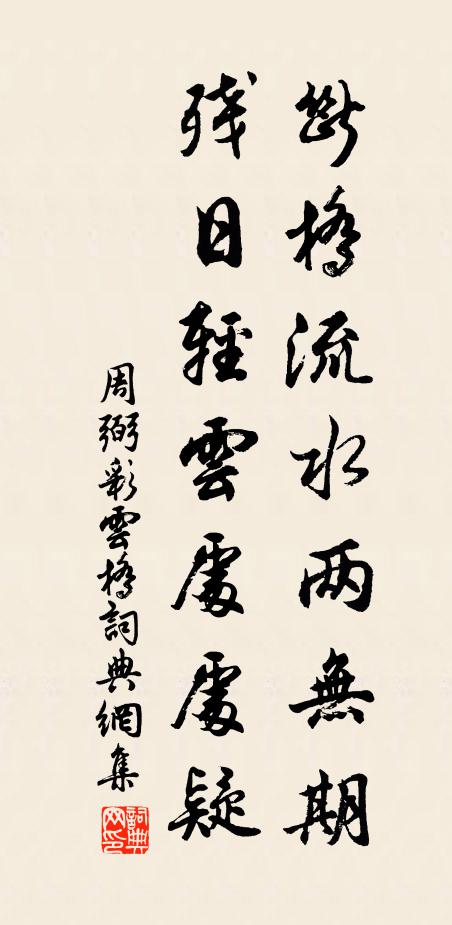 斷橋流水两無期
残日輕雲處處疑
周弼彩雲橋詞典網集
詞典网印